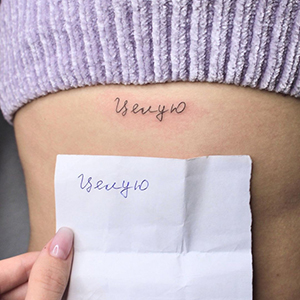 Целую
Целую